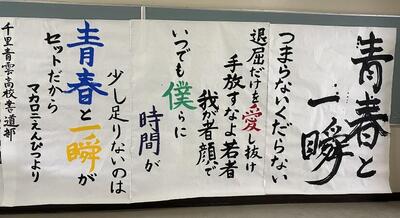 青春と
一瞬
つまらないくだらない
退屈だけを愛し抜け
手放すなよ若者
我が者顔で
いつでも僕らに
時間が
少し足りないのは
青春と一瞬が
セットだから
マカロニえんぴつより
千里青雲高校書道部